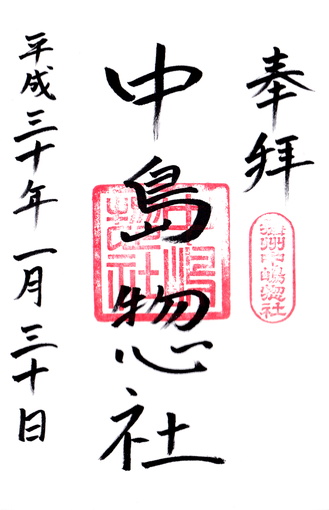 奉拝
中島惣社
平成三十年一月三十日